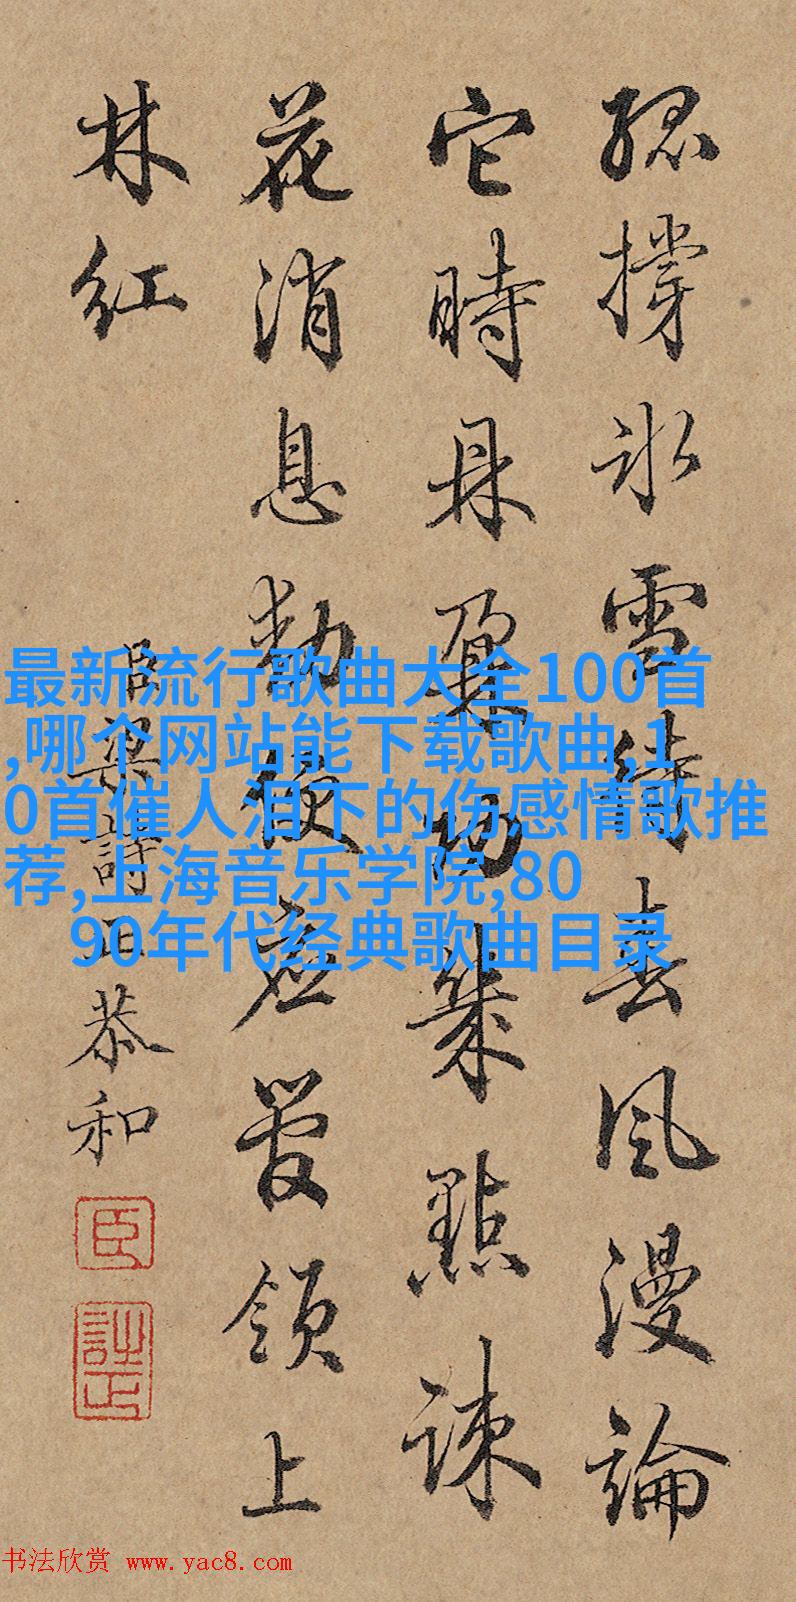 孤撐冰雪春風漫論
它時鼎鼐功幾點疎
花消息應管領上
林紅
臣梁詩正恭和
臣
詩正
最新流行歌曲大全100首
,哪个网站能下载歌曲,1
0首催人泪下的伤感情歌推
荐,上海音乐学院,80
90年代经典歌曲目录
书法欣赏 www.yac8.com